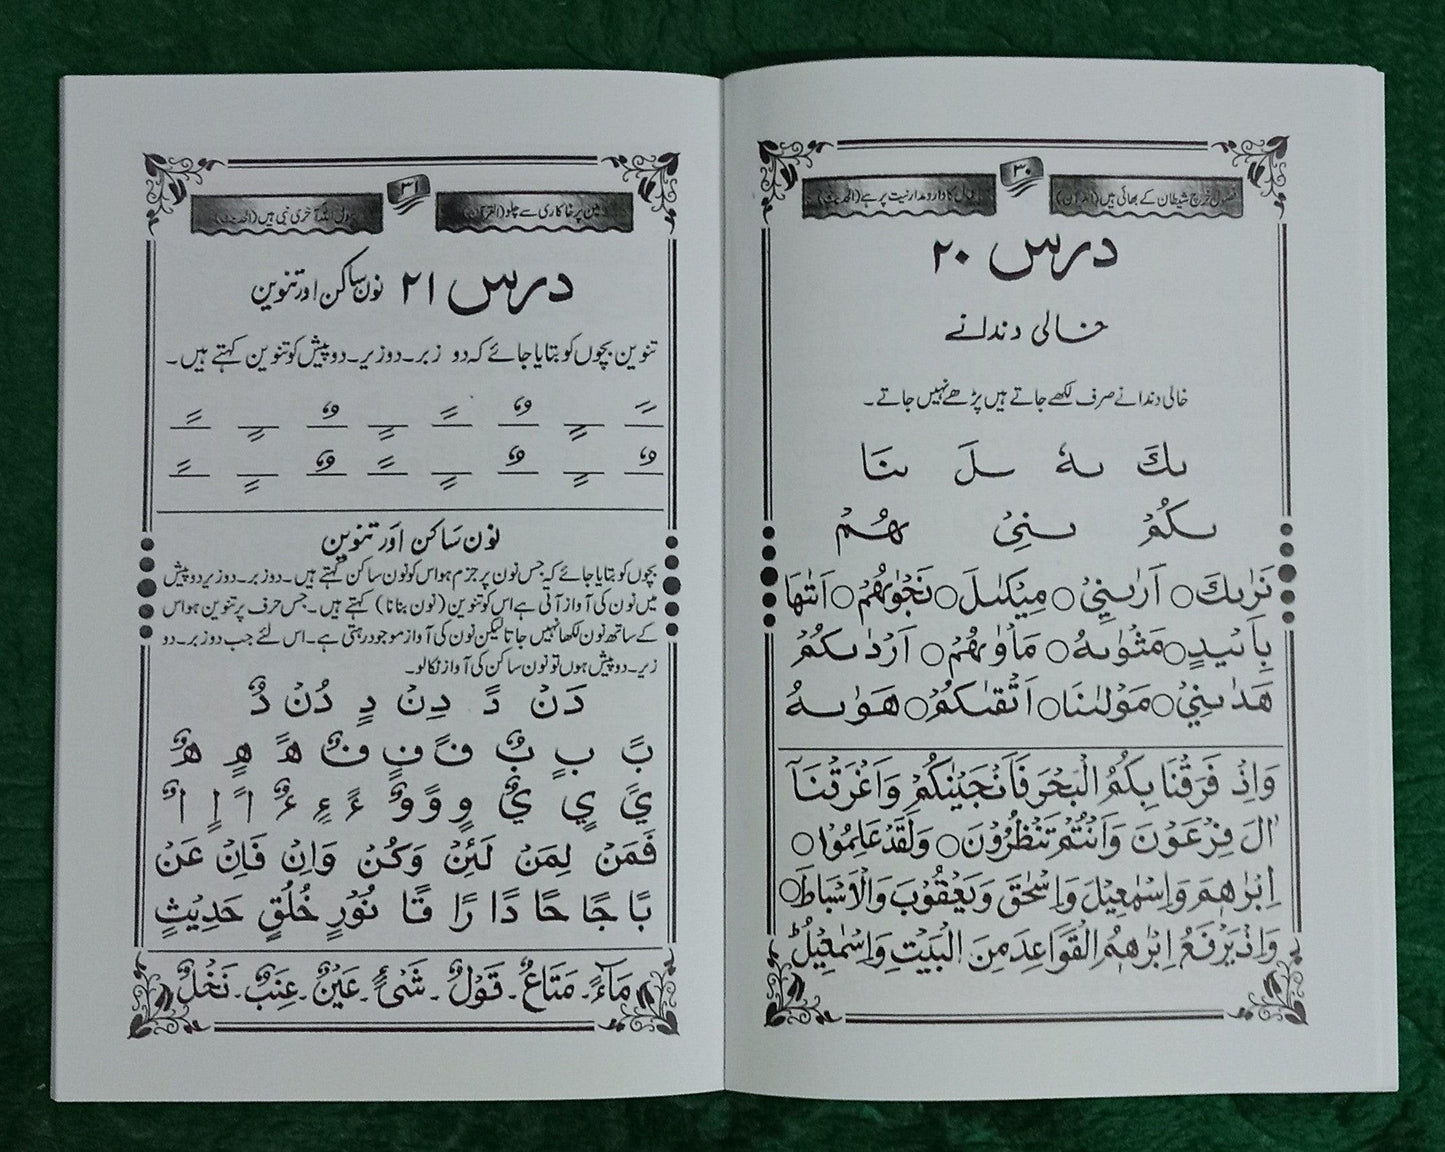 ۳۰
فضول خرچ شیطان کے بھائی ہیں (القرآن)
اعمال کا دارومدار نیت پر ہے (الحدیث)
درس ۲۰
خالی دندانے
خالی دندانے صرف لکھے جاتے ہیں پڑھے نہیں جاتے۔
ىكَ ىهٗ ىلَ ىنَا
ىكُمْ ىنِىْ ىهُمْ
نَرٰىكَ ○ اَرٰىنِىْ ○ مِيْكٰىلَ ○ نَجْوٰىهُمْ ○ اَتٰىهَا
بِاَىْيدٍ ○ مَثْوٰىهُ ○ مَاْوٰىهُمْ ○ اَرْدٰىكُمْ
هَدٰىنِىْ ○ مَوْلٰىنَا ○ اَتْقٰىكُمْ ○ هَوٰىهُ
وَاِذْ فَرَقْنَا بِكُمُ الْبَحْرَ فَاَنْجَيْنٰكُمْ وَاَغْرَقْنَآ
اٰلَ فِرْعَوْنَ وَاَنْتُمْ تَنْظُرُوْنَ ○ وَلَقَدْ عَلِمُوْا ○
اِبْرٰهٖمَ وَاِسْمٰعِيْلَ وَاِسْحٰقَ وَيَعْقُوْبَ وَالْاَسْبَاطَ ○
وَاِذْ يَرْفَعُ اِبْرٰهٖمُ الْقَوَاعِدَ مِنَ الْبَيْتِ وَاِسْمٰعِيْلُ ؕ
۳۱
زمین پر خاکاری سے چلو (القرآن)
رسول اللہ آخری نبی ہیں (الحدیث)
درس ۲۱ نون ساکن اور تنوین
تنوین بچوں کو بتایا جائے کہ دو زبر۔ دو زیر۔ دو پیش کو تنوین کہتے ہیں۔
نون ساکن اور تنوین
بچوں کو بتایا جائے کہ جس نون پر جزم ہو اس کو نون ساکن کہتے ہیں۔ دو زبر۔ دو زیر دو پیش
میں نون کی آواز آتی ہے اس کو تنوین (نون بنانا) کہتے ہیں۔ جس حرف پر تنوین ہو اس
کے ساتھ نون لکھا نہیں جاتا لیکن نون کی آواز موجود رہتی ہے۔ اس لئے جب دو زبر۔ دو
زیر۔ دو پیش ہوں تو نون ساکن کی آواز نکالو۔
دَنْ دً دِنْ دٍ دُنْ دٌ
بً بٍ بٌ فً فٍ فٌ هً هٍ هٌ
يً يٍ يٌ وٍ وً وٌ ءً ءٍ ءٌ اً اٍ اٌ
فَمَنْ لِمَنْ لَئِنْ وَكُنْ وَاِنْ فَاِنْ عَنْ
بًا جًا حًا دًا رًا قًا نُوْرٍ خُلُقٍ حَدِيْثٍ
مَآءً۔ مَتَاعٌ۔ قَوْلٌ۔ شَىْءٍ۔ عَيْنٌ۔ عِنَبٌ۔ نَخْلٌ